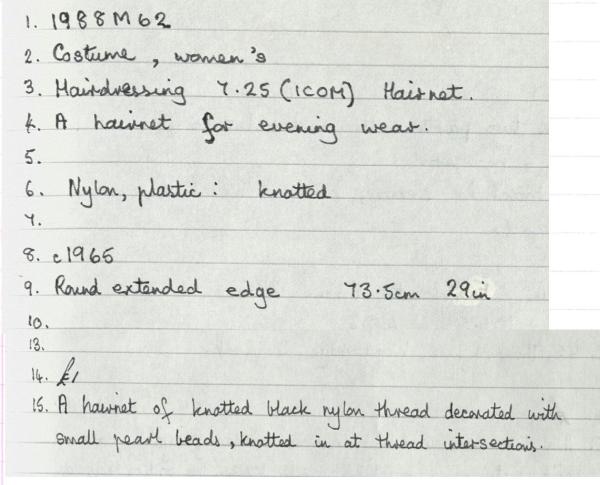 1. 1988 M 62
2. Costume, women's
3. Hairdressing 7.25 (ICOM) Hairnet.
4. A hairnet for evening wear.
5.
6. Nylon, plastic: knotted
7.
8. c1965
9. Round extended edge 73.5cm 29in
10.
13.
14. £1
15. A hairnet of knotted black nylon thread decorated with
small pearl beads, knotted in at thread intersections.